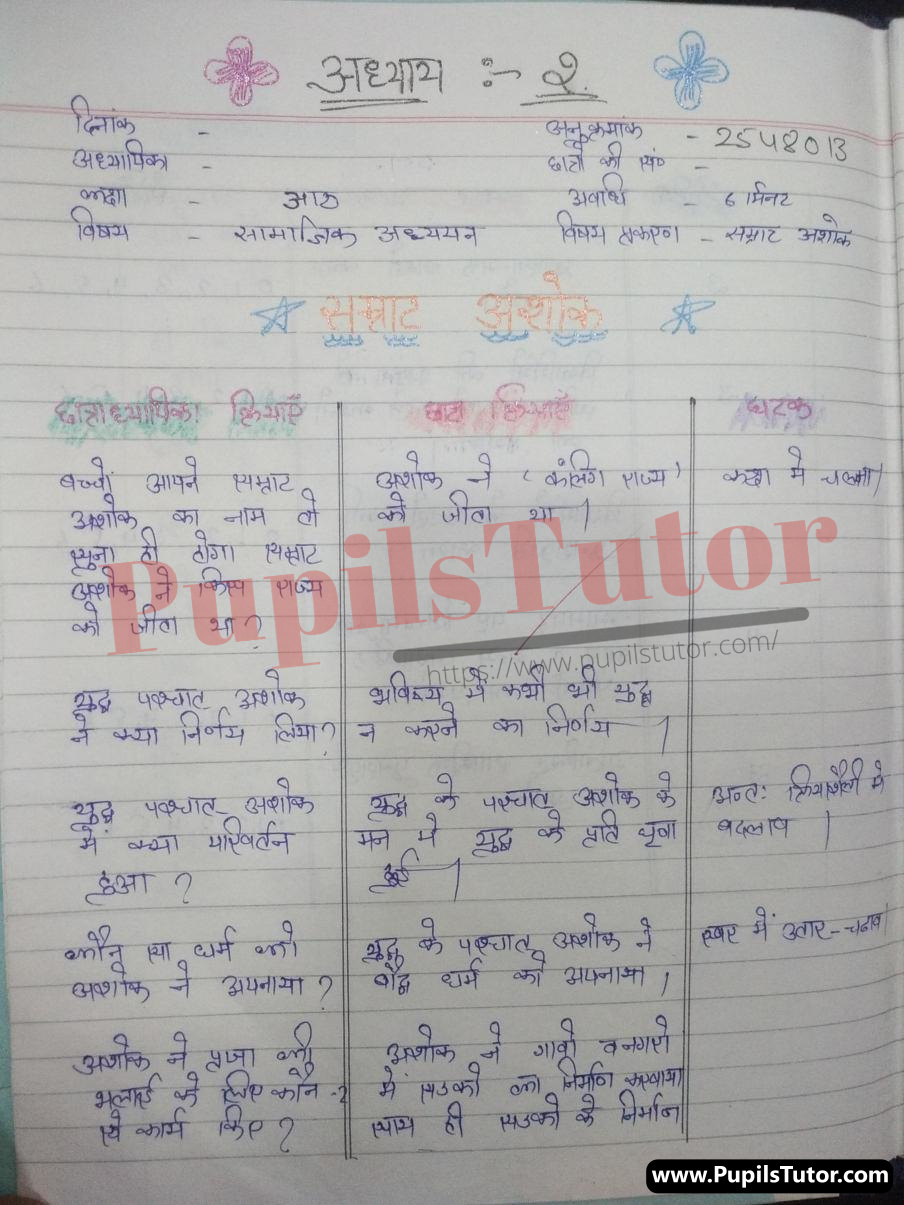 अध्याय :- २.
दिनांक -
अनुक्रमांक - 2548013
अध्यापिका -
छात्रों की सं० -
कक्षा - आठ
अवधि - 6 मिनट
विषय - सामाजिक अध्ययन
विषय प्रकरण - सम्राट अशोक
सम्राट अशोक
छात्राध्यापिका क्रियाएँ
बच्चों आपने सम्राट
अशोक का नाम तो
सुना ही होगा सम्राट
अशोक ने किस राज्य
को जीता था ?
युद्ध पश्चात अशोक
ने क्या निर्णय लिया ?
युद्ध पश्चात अशोक
में क्या परिवर्तन
हुआ ?
कौन सा धर्म को
अशोक ने अपनाया ?
अशोक ने प्रजा की
भलाई के लिए कौन-2
से कार्य किए ?
छात्र क्रियाएँ
अशोक ने 'कलिंग राज्य'
को जीता था।
भविष्य में कभी भी युद्ध
न करने का निर्णय।
युद्ध के पश्चात अशोक के
मन मे युद्ध के प्रति घृणा
हुई।
युद्ध के पश्चात अशोक ने
बौद्ध धर्म को अपनाया।
अशोक ने गावो व नगरो
में सडको का निर्माण करवाया
साथ ही सडको के निर्माण
घटक
कक्षा मे चलना।
अन्त: क्रियाशैली मे
बदलाव।
स्वर में उतार-चढाव
PupilsTutor
https://www.pupilstutor.com/
www.PupilsTutor.com